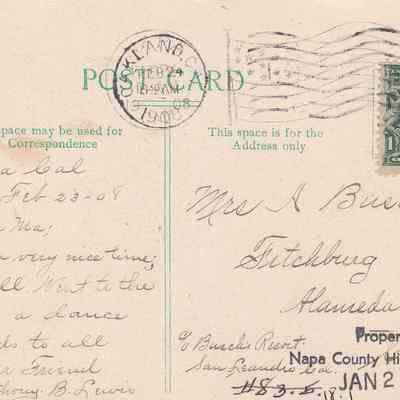 OAKLAND, C
FEB 24
1908
POST CARD
space may be used for
Correspondence
This space is for the
Address only
a Cal
Feb 23-08
Ma;
very nice time;
ll Went to the
a dance
ds to all
a Friend
thony. B. Lewis
Mrs A Bus
Fitchburg
Alameda
c/o Buschs Resort.
San Leandro Cal.
Proper
Napa County Hi
JAN 2
#83.5
18.1
1